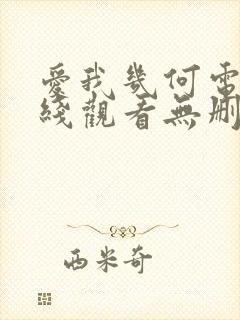 愛我幾何電
綫觀看無刪
西米奇